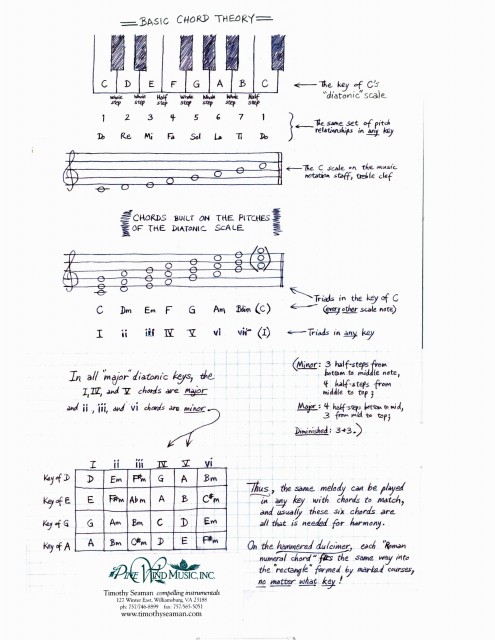 BASIC CHORD THEORY
C D E F G A B C
Whole step Whole step Half step Whole step Whole step Whole step Half step
The key of C's
"diatonic" scale
1 2 3 4 5 6 7 1
Do Re Mi Fa Sol La Ti Do
The same set of pitch
relationships in any key
The C scale on the music
notation staff, treble clef
CHORDS BUILT ON THE PITCHES
OF THE DIATONIC SCALE
C Dm Em F G Am Bdim (C)
Triads in the key of C
(every other scale note)
I ii iii IV V vi vii° (I)
Triads in any key
In all "major" diatonic keys, the
I, IV, and V chords are major
and ii, iii, and vi chords are minor.
(Minor: 3 half-steps from
bottom to middle note,
4 half-steps from
middle to top;
Major: 4 half-steps bottom to mid,
3 from mid to top;
Diminished: 3+3.)
I ii iii IV V vi
Key of D D Em F#m G A Bm
Key of E E F#m Abm A B C#m
Key of G G Am Bm C D Em
Key of A A Bm C#m D E F#m
Thus, the same melody can be played
in any key with chords to match,
and usually these six chords are
all that is needed for harmony.
On the hammered dulcimer, each "Roman
numeral chord" fits the same way into
the "rectangle" formed by marked courses,
no matter what key!
PINE WIND MUSIC, INC.
Timothy Seaman compelling instrumentals
127 Winter East, Williamsburg, VA 23188
ph: 757/746-8899 fax: 757/565-5051
www.timothyseaman.com